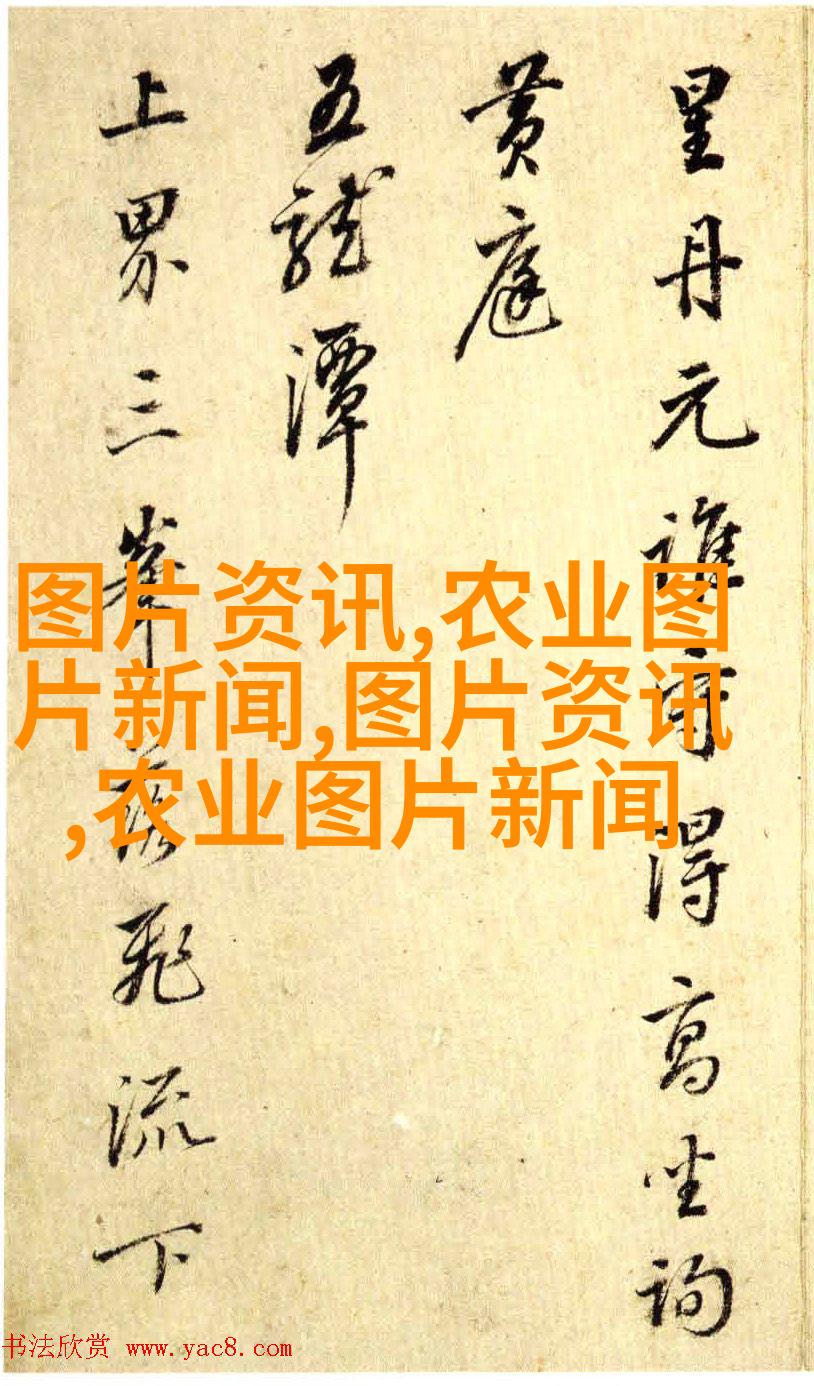 星丹元誰得高坐詢
黄庭
五龍潭
上界三峯飛流下
图片资讯,农业图
片新闻,图片资讯
,农业图片新闻
书法欣赏 www.yac8.com